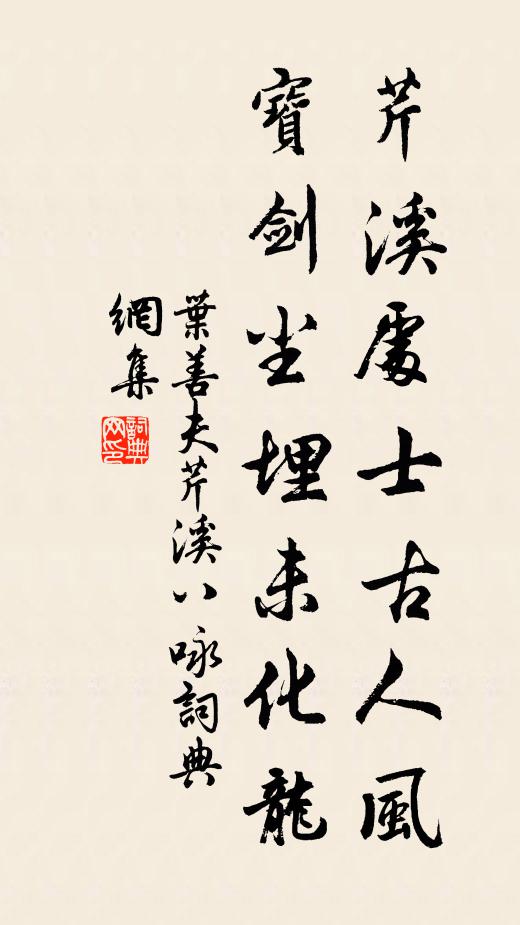 芹溪處士古人風
寶劍尘埋未化龍
葉善夫芹溪八咏詞典
網集
詞典
网印